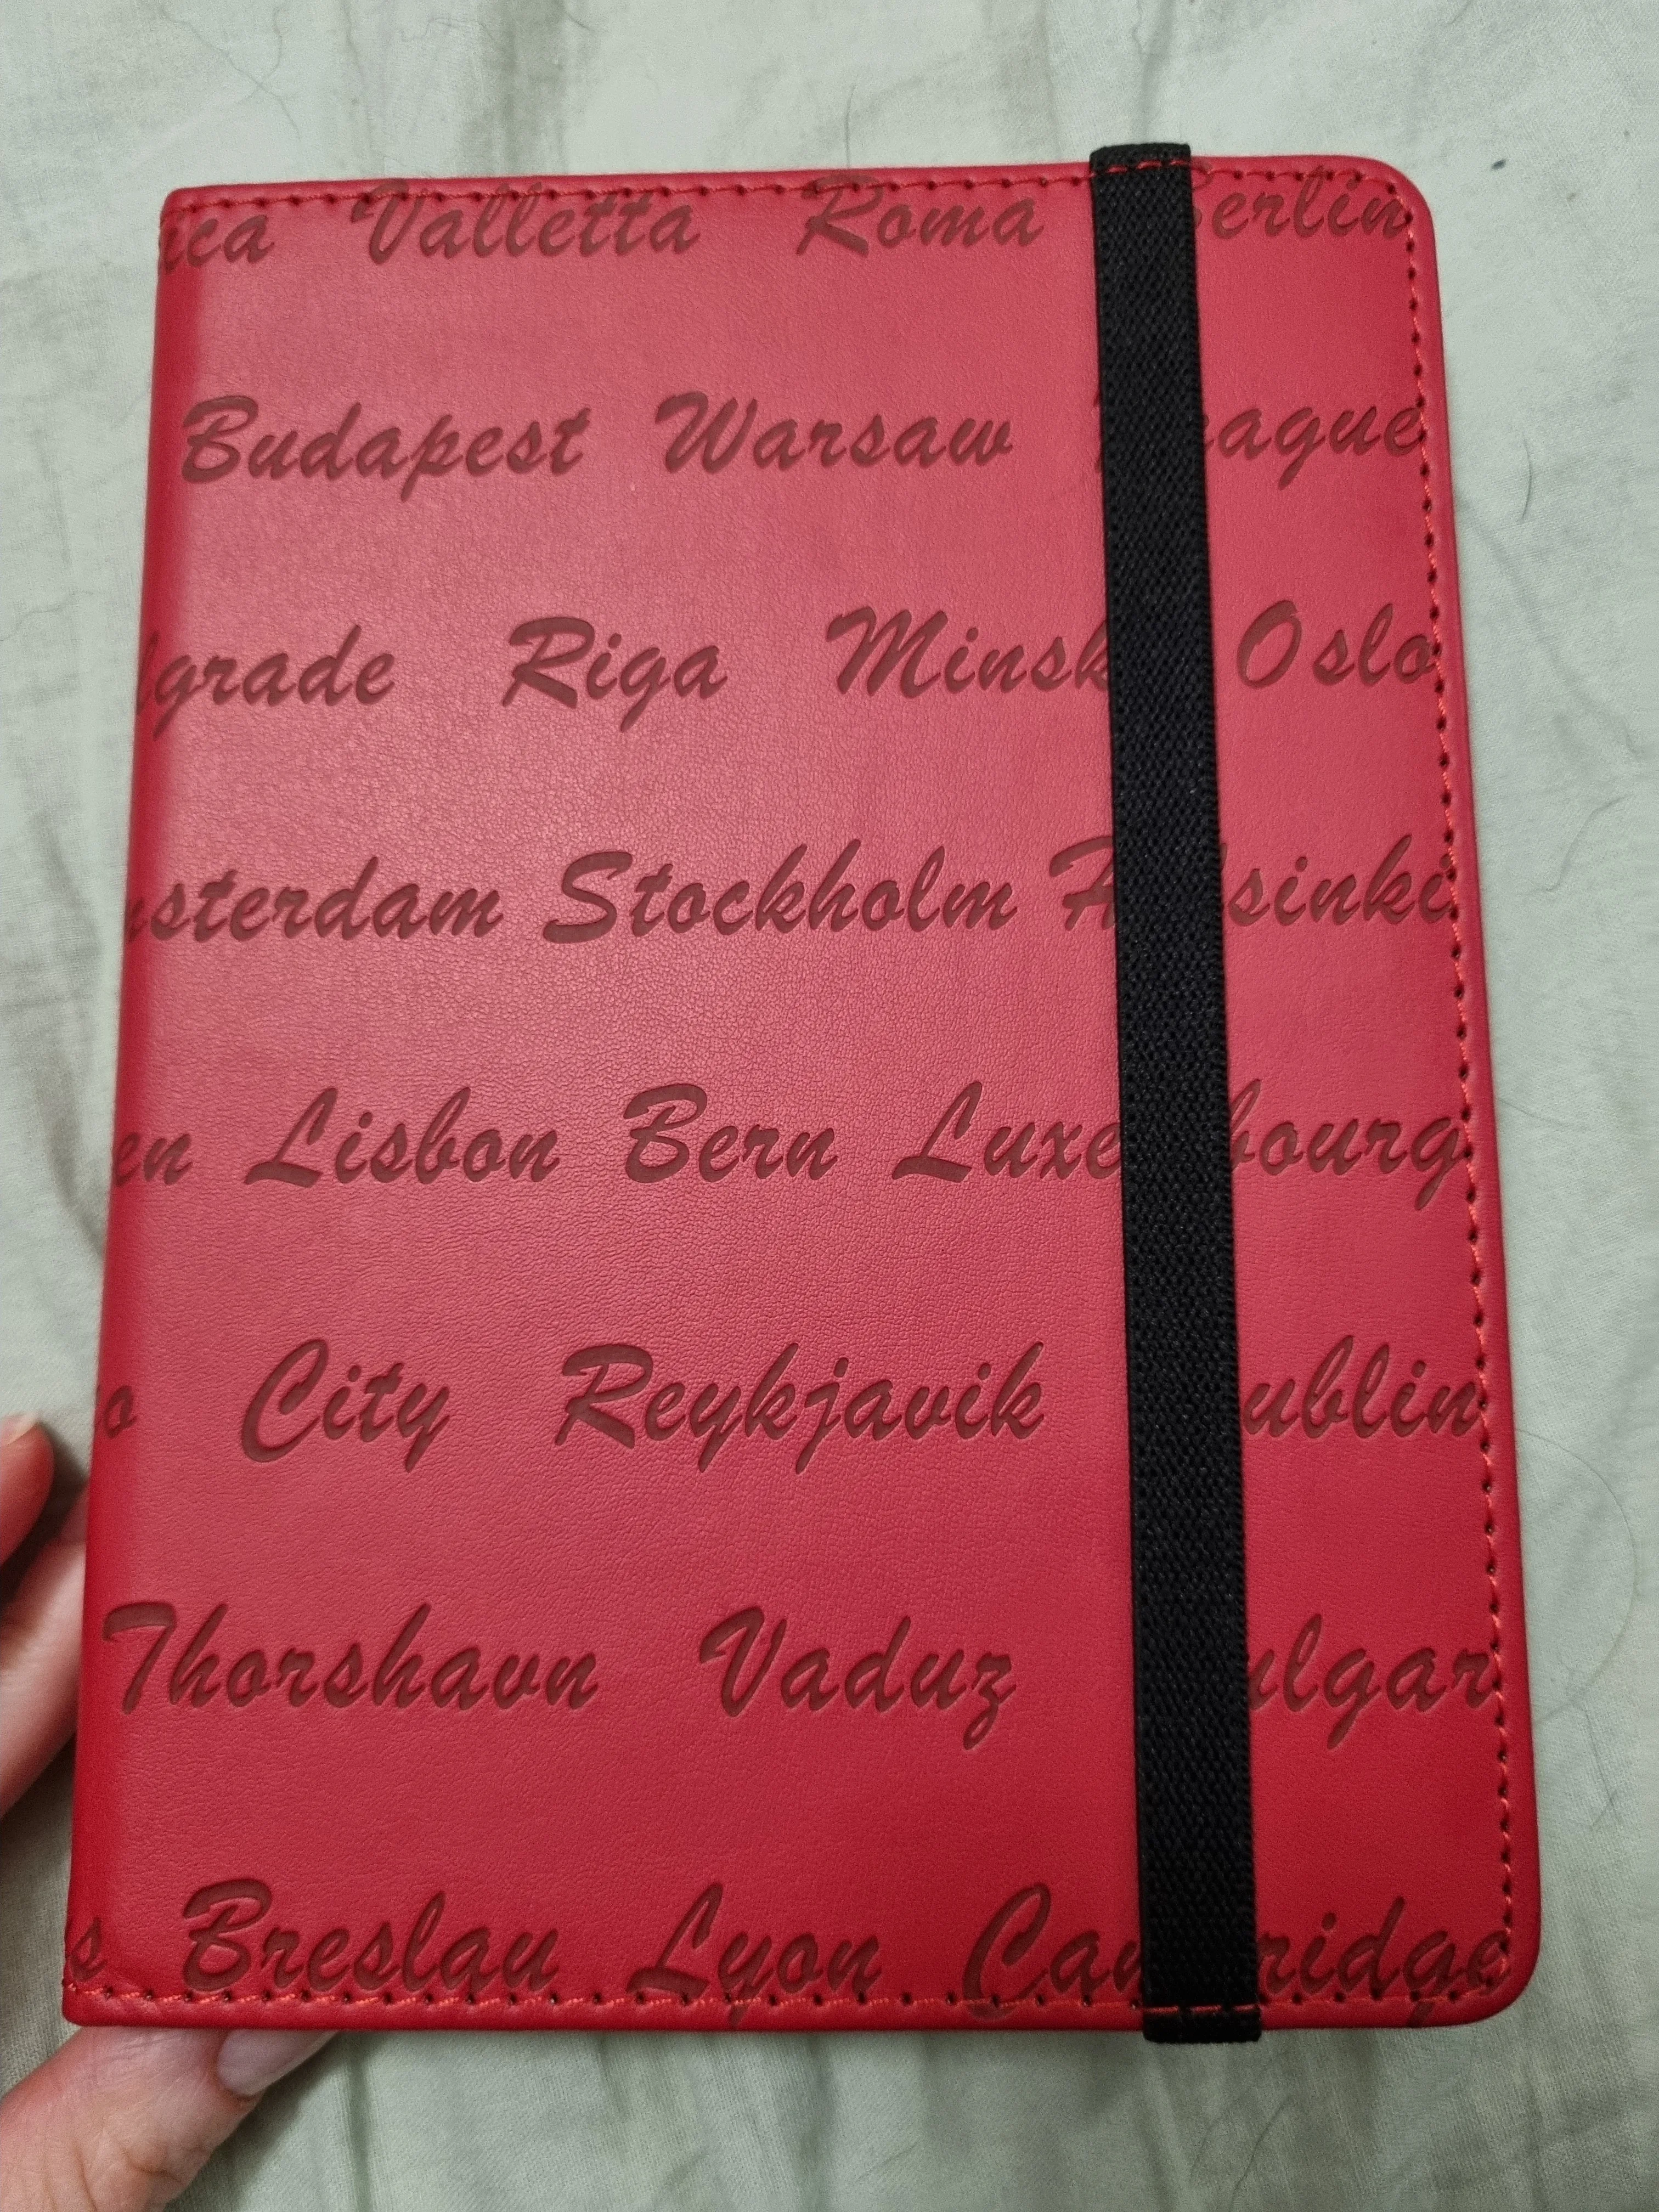 ica Valletta Roma Berlin
Budapest Warsaw Prague
lgrade Riga Minsk Oslo
msterdam Stockholm Helsinki
en Lisbon Bern Luxembourg
o City Reykjavik Dublin
Thorshavn Vaduz ulgar
s Breslau Lyon Cambridge